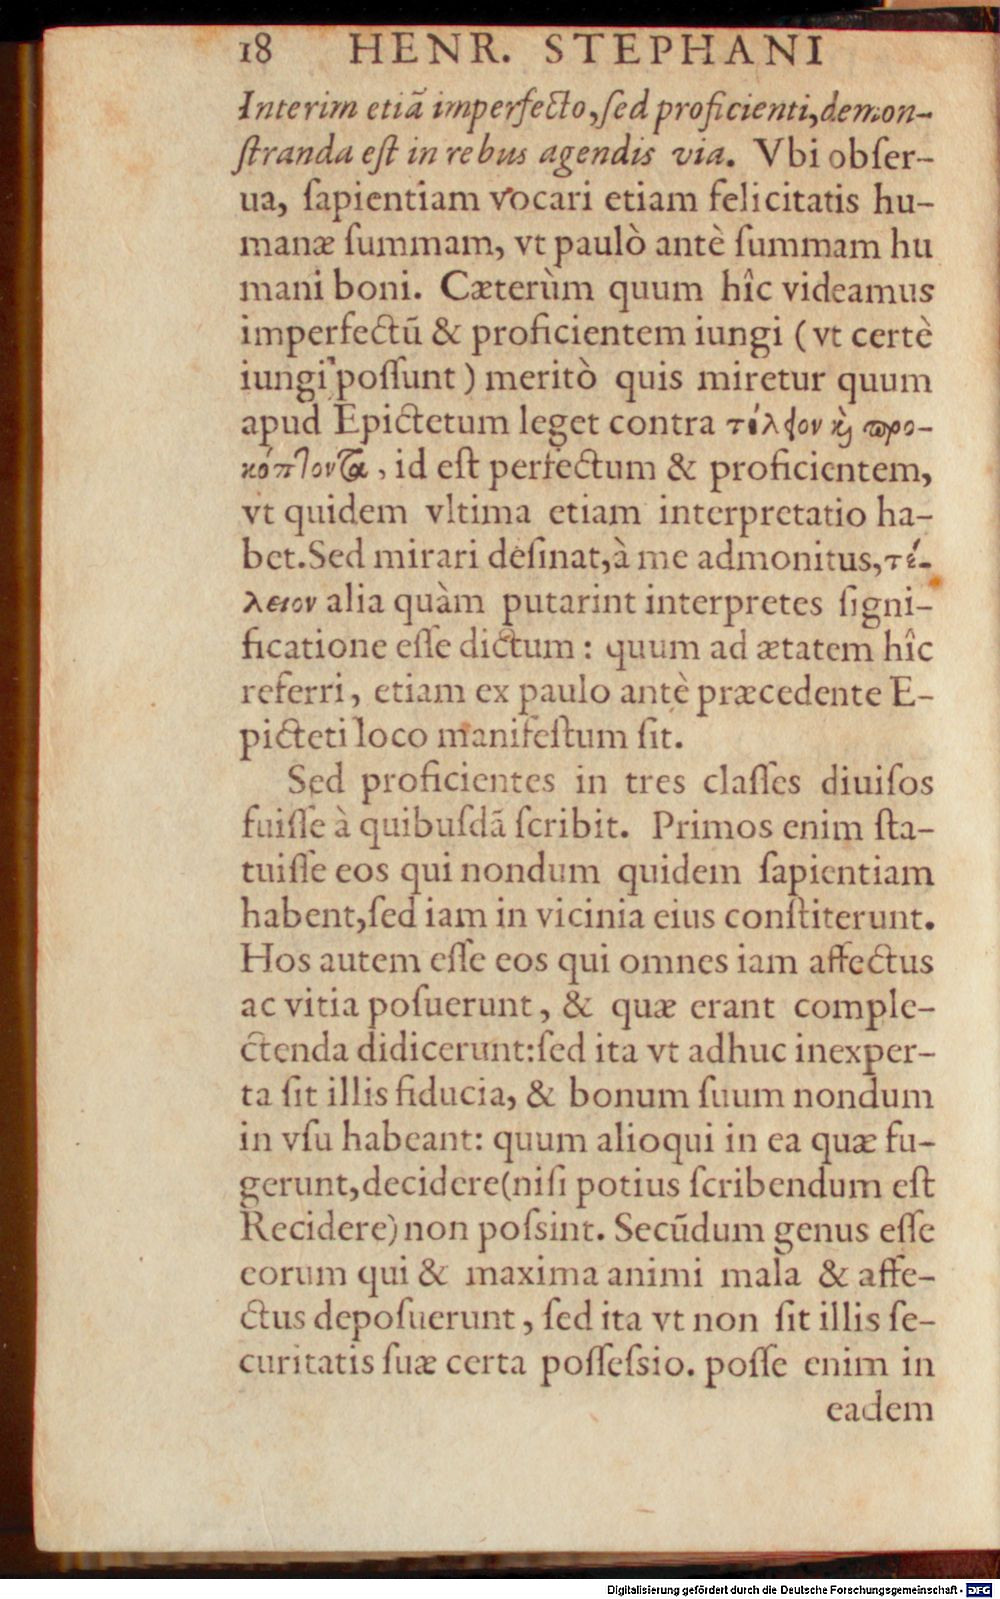 18 HENR. STEPHANI
Interim etiã imperfecto, ſed proficienti, demon-
ſtranda eſt in rebus agendis via. Vbi obſer-
ua, ſapientiam vocari etiam felicitatis hu-
manæ ſummam, vt paulò antè ſummam hu
mani boni. Cæterùm quum hîc videamus
imperfectũ & proficientem iungi ( vt certè
iungi poſſunt ) meritò quis miretur quum
apud Epictetum leget contra τέλειον ϗ προ-
κόπτοντα, id eſt perfectum & proficientem,
vt quidem vltima etiam interpretatio ha-
bet. Sed mirari deſinat, à me admonitus, τέ-
λειον alia quàm putarint interpretes ſigni-
ficatione eſſe dictum : quum ad ætatem hîc
referri, etiam ex paulo antè præcedente E-
picteti loco manifeſtum ſit.
Sed proficientes in tres claſſes diuiſos
fuiſſe à quibuſdã ſcribit. Primos enim ſta-
tuiſſe eos qui nondum quidem ſapientiam
habent, ſed iam in vicinia eius conſtiterunt.
Hos autem eſſe eos qui omnes iam affectus
ac vitia poſuerunt, & quæ erant comple-
ctenda didicerunt: ſed ita vt adhuc inexper-
ta ſit illis fiducia, & bonum ſuum nondum
in vſu habeant: quum alioqui in ea quæ fu-
gerunt, decidere (niſi potius ſcribendum eſt
Recidere) non poſsint. Secũdum genus eſſe
eorum qui & maxima animi mala & affe-
ctus depoſuerunt, ſed ita vt non ſit illis ſe-
curitatis ſuæ certa poſſeſsio. poſſe enim in
eadem
Digitalisierung gefördert durch die Deutsche Forschungsgemeinschaft - DFG